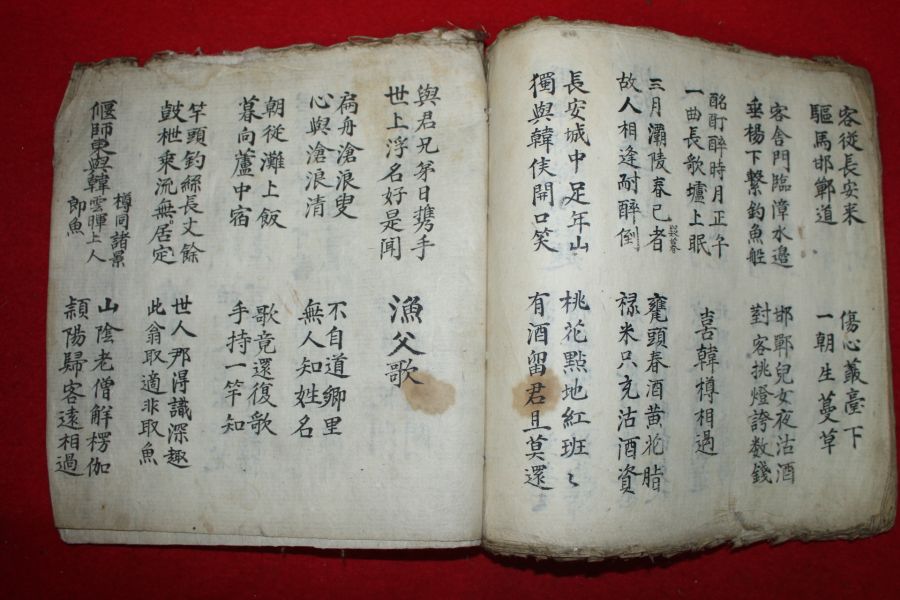 客從長安来
驅馬邯鄲道
傷心叢臺下
一朝生蔓草
客舍門臨漳水邉
垂楊下繋釣魚舡
邯鄲兒女夜沽酒
對客挑燈誇数錢
酩酊醉時月正午
一曲長歌壚上眠
喜韓樽相過
三月灞陵春已者
故人相逢耐醉倒
甕頭春酒黄花脂
禄米只充沽酒資
長安城中足年山
獨與韓侯開口笑
桃花點地紅班〻
有酒留君且莫還
與君兄弟日携手
世上浮名好是閒
漁父歌
扁舟滄浪叟
心與滄浪清
不自道鄉里
無人知姓名
朝従灘上飯
暮向蘆中宿
歌竟還復歌
手持一竿知
竿頭釣絲長丈餘
鼓枻乘流無居定
世人那得識深趣
此翁取適非取魚
偃師東與韓樽同諸景雲暉上人即魚
山陰老僧觧楞伽
頴陽歸客遠相過